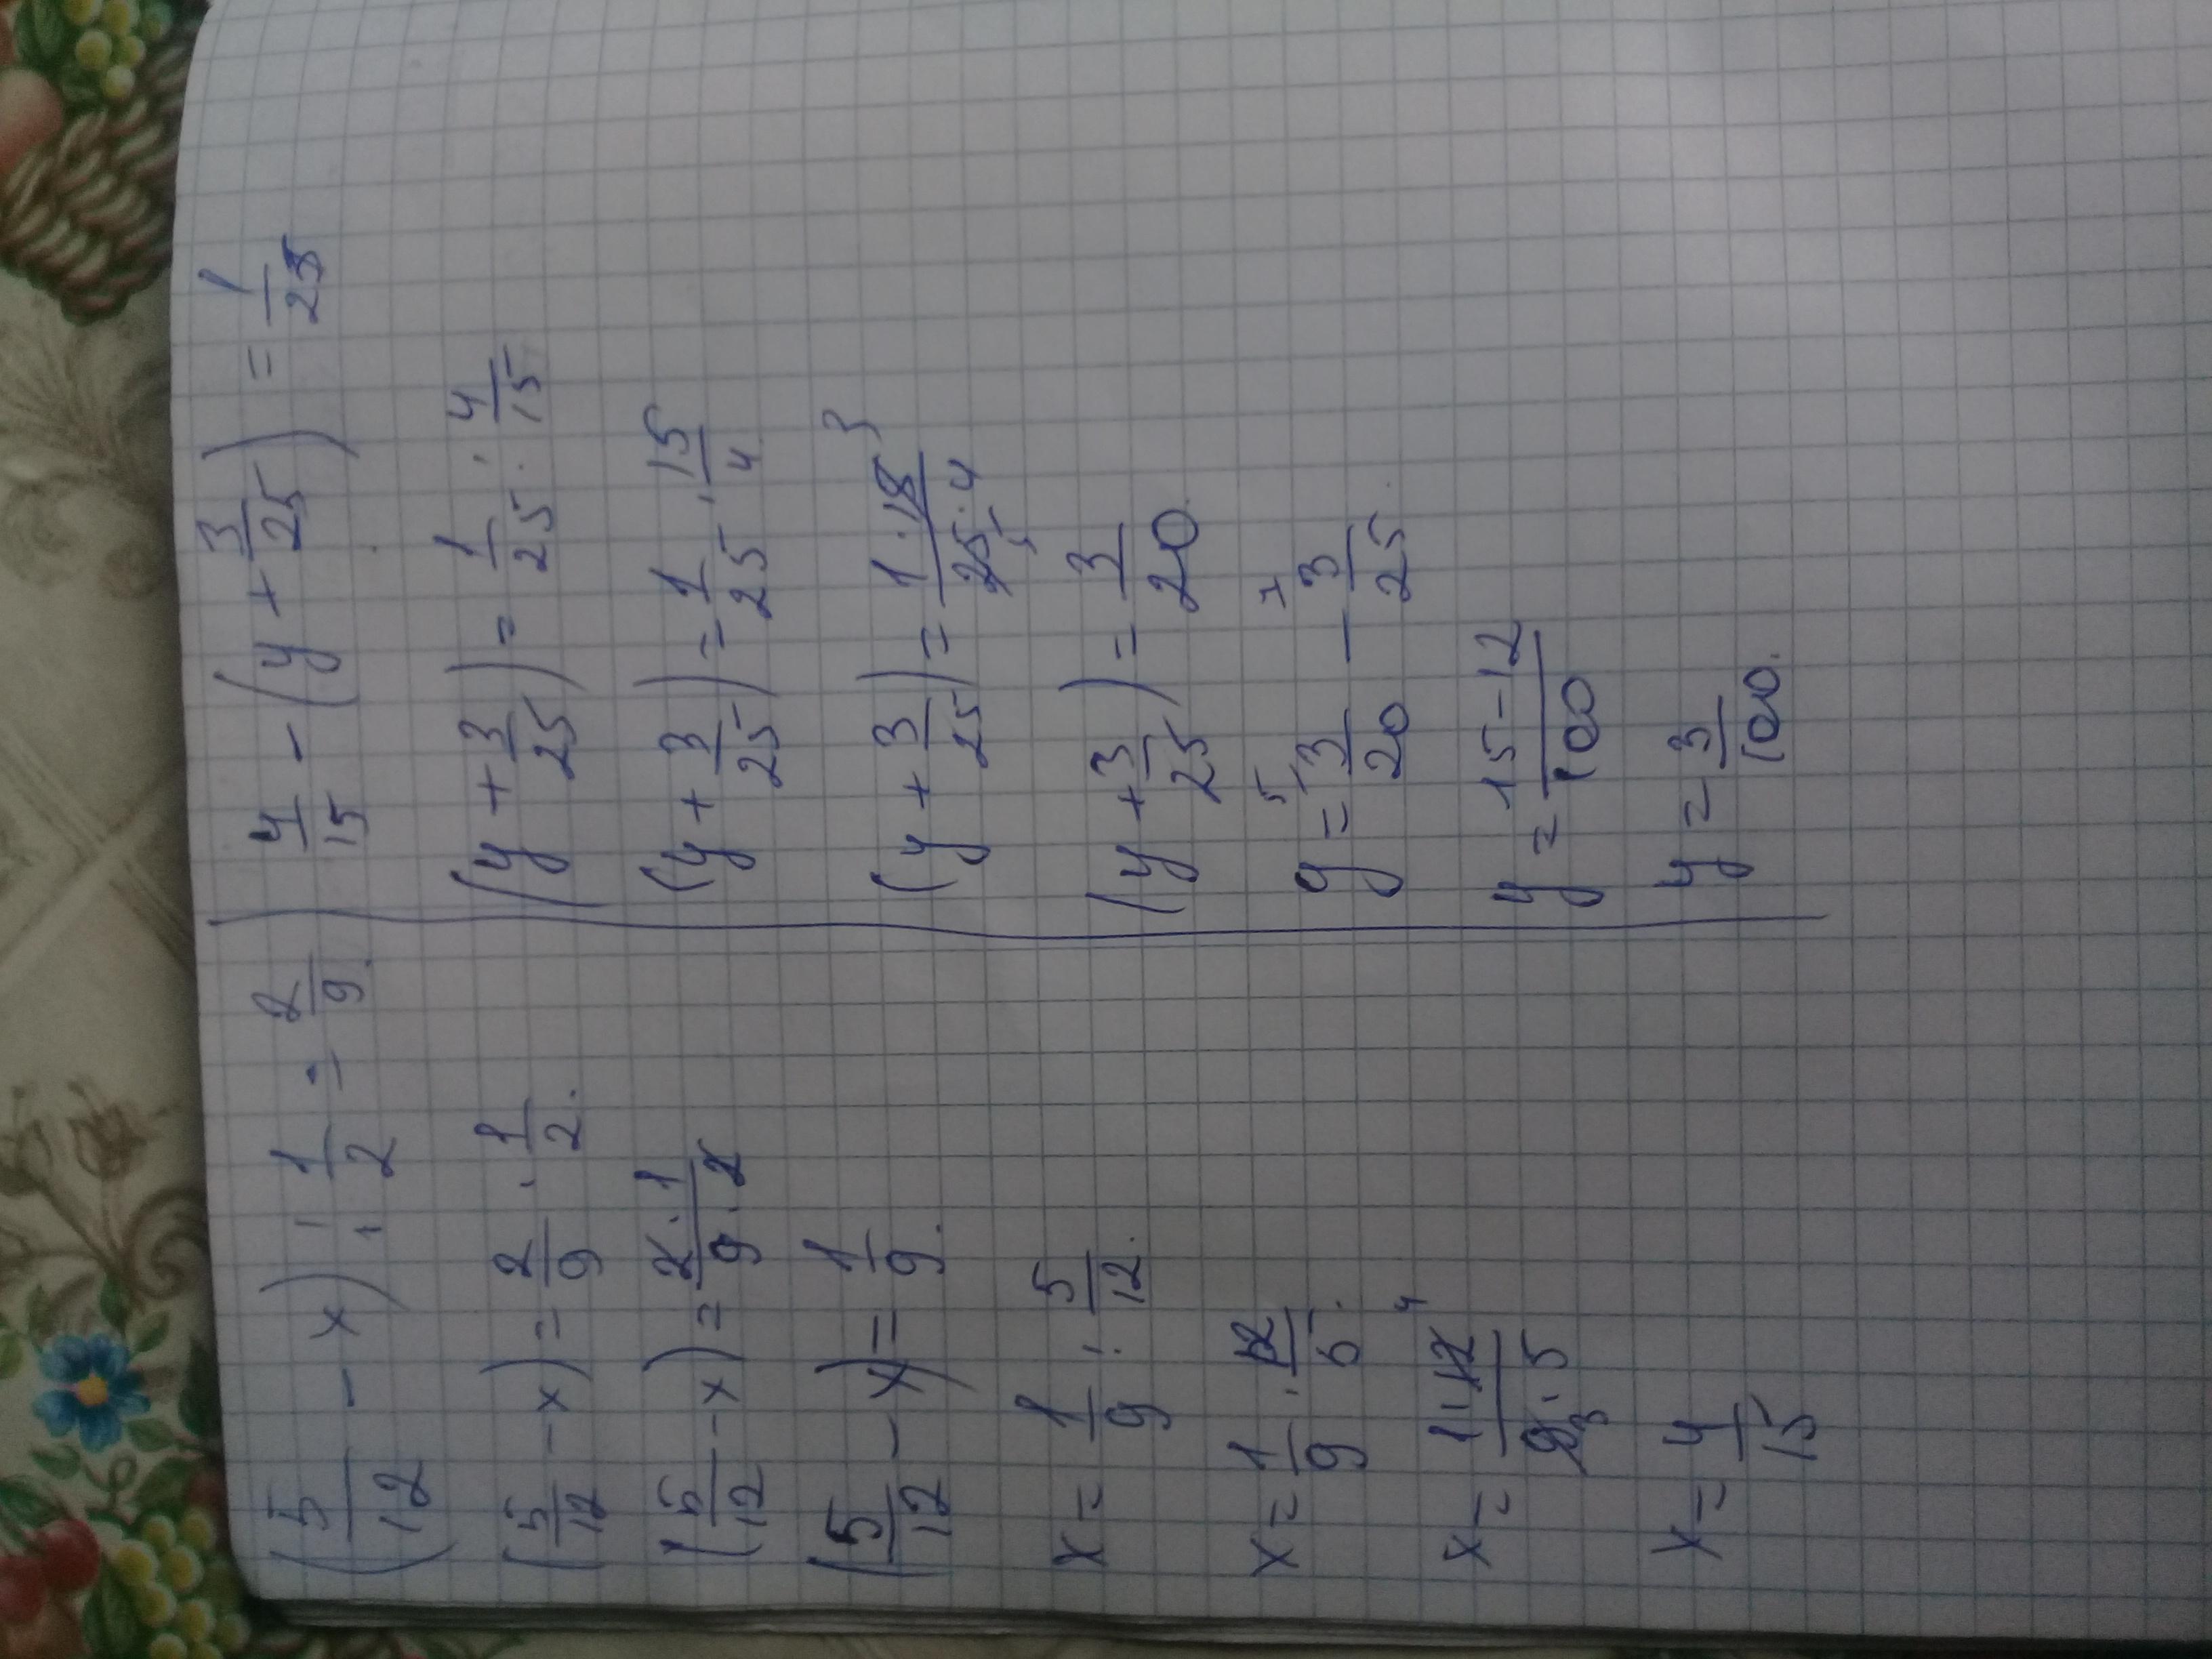 (5/12 - x) : 1/2 = 2/9.
(5/12 - x) = 2/9 · 1/2.
(5/12 - x) = 2·1/9·2
(5/12 - x) = 1/9.
x = 1/9 : 5/12.
x = 1/9 · 12/5.
x = 1·12/9·5 4 3
x = 4/15
4/15 - (y + 3/25) = 1/25
(y + 3/25) = 1/25 : 4/15
(y + 3/25) = 1/25 · 15/4
(y + 3/25) = 1·15/25·4 3 5
(y + 3/20) = 3/20.
y = 5 3/20 - 3/25.
y = 15-12/100
y = 3/100.